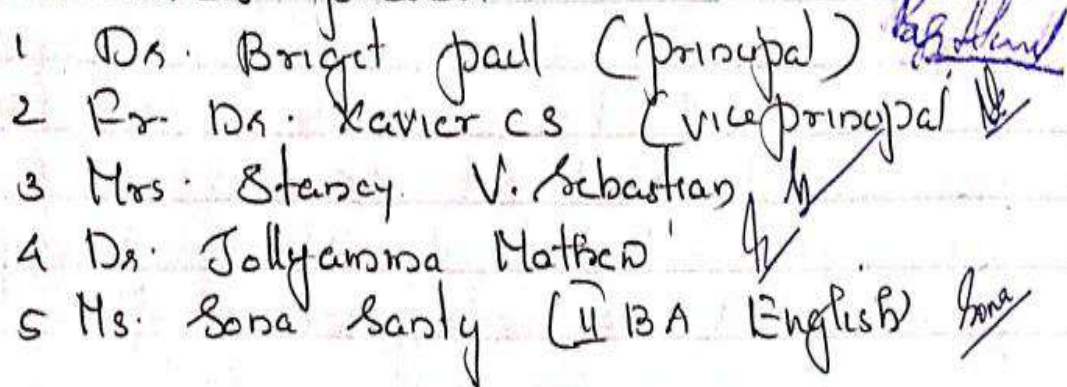 1 Dr. Brigit Paul (principal)
2 Fr. Dr. Xavier CS (vice principal
3 Mrs. Stancy. V. Sebastian
4 Dr. Jollyamma Mathew
5 Ms. Sona Santy (II BA English) Sona